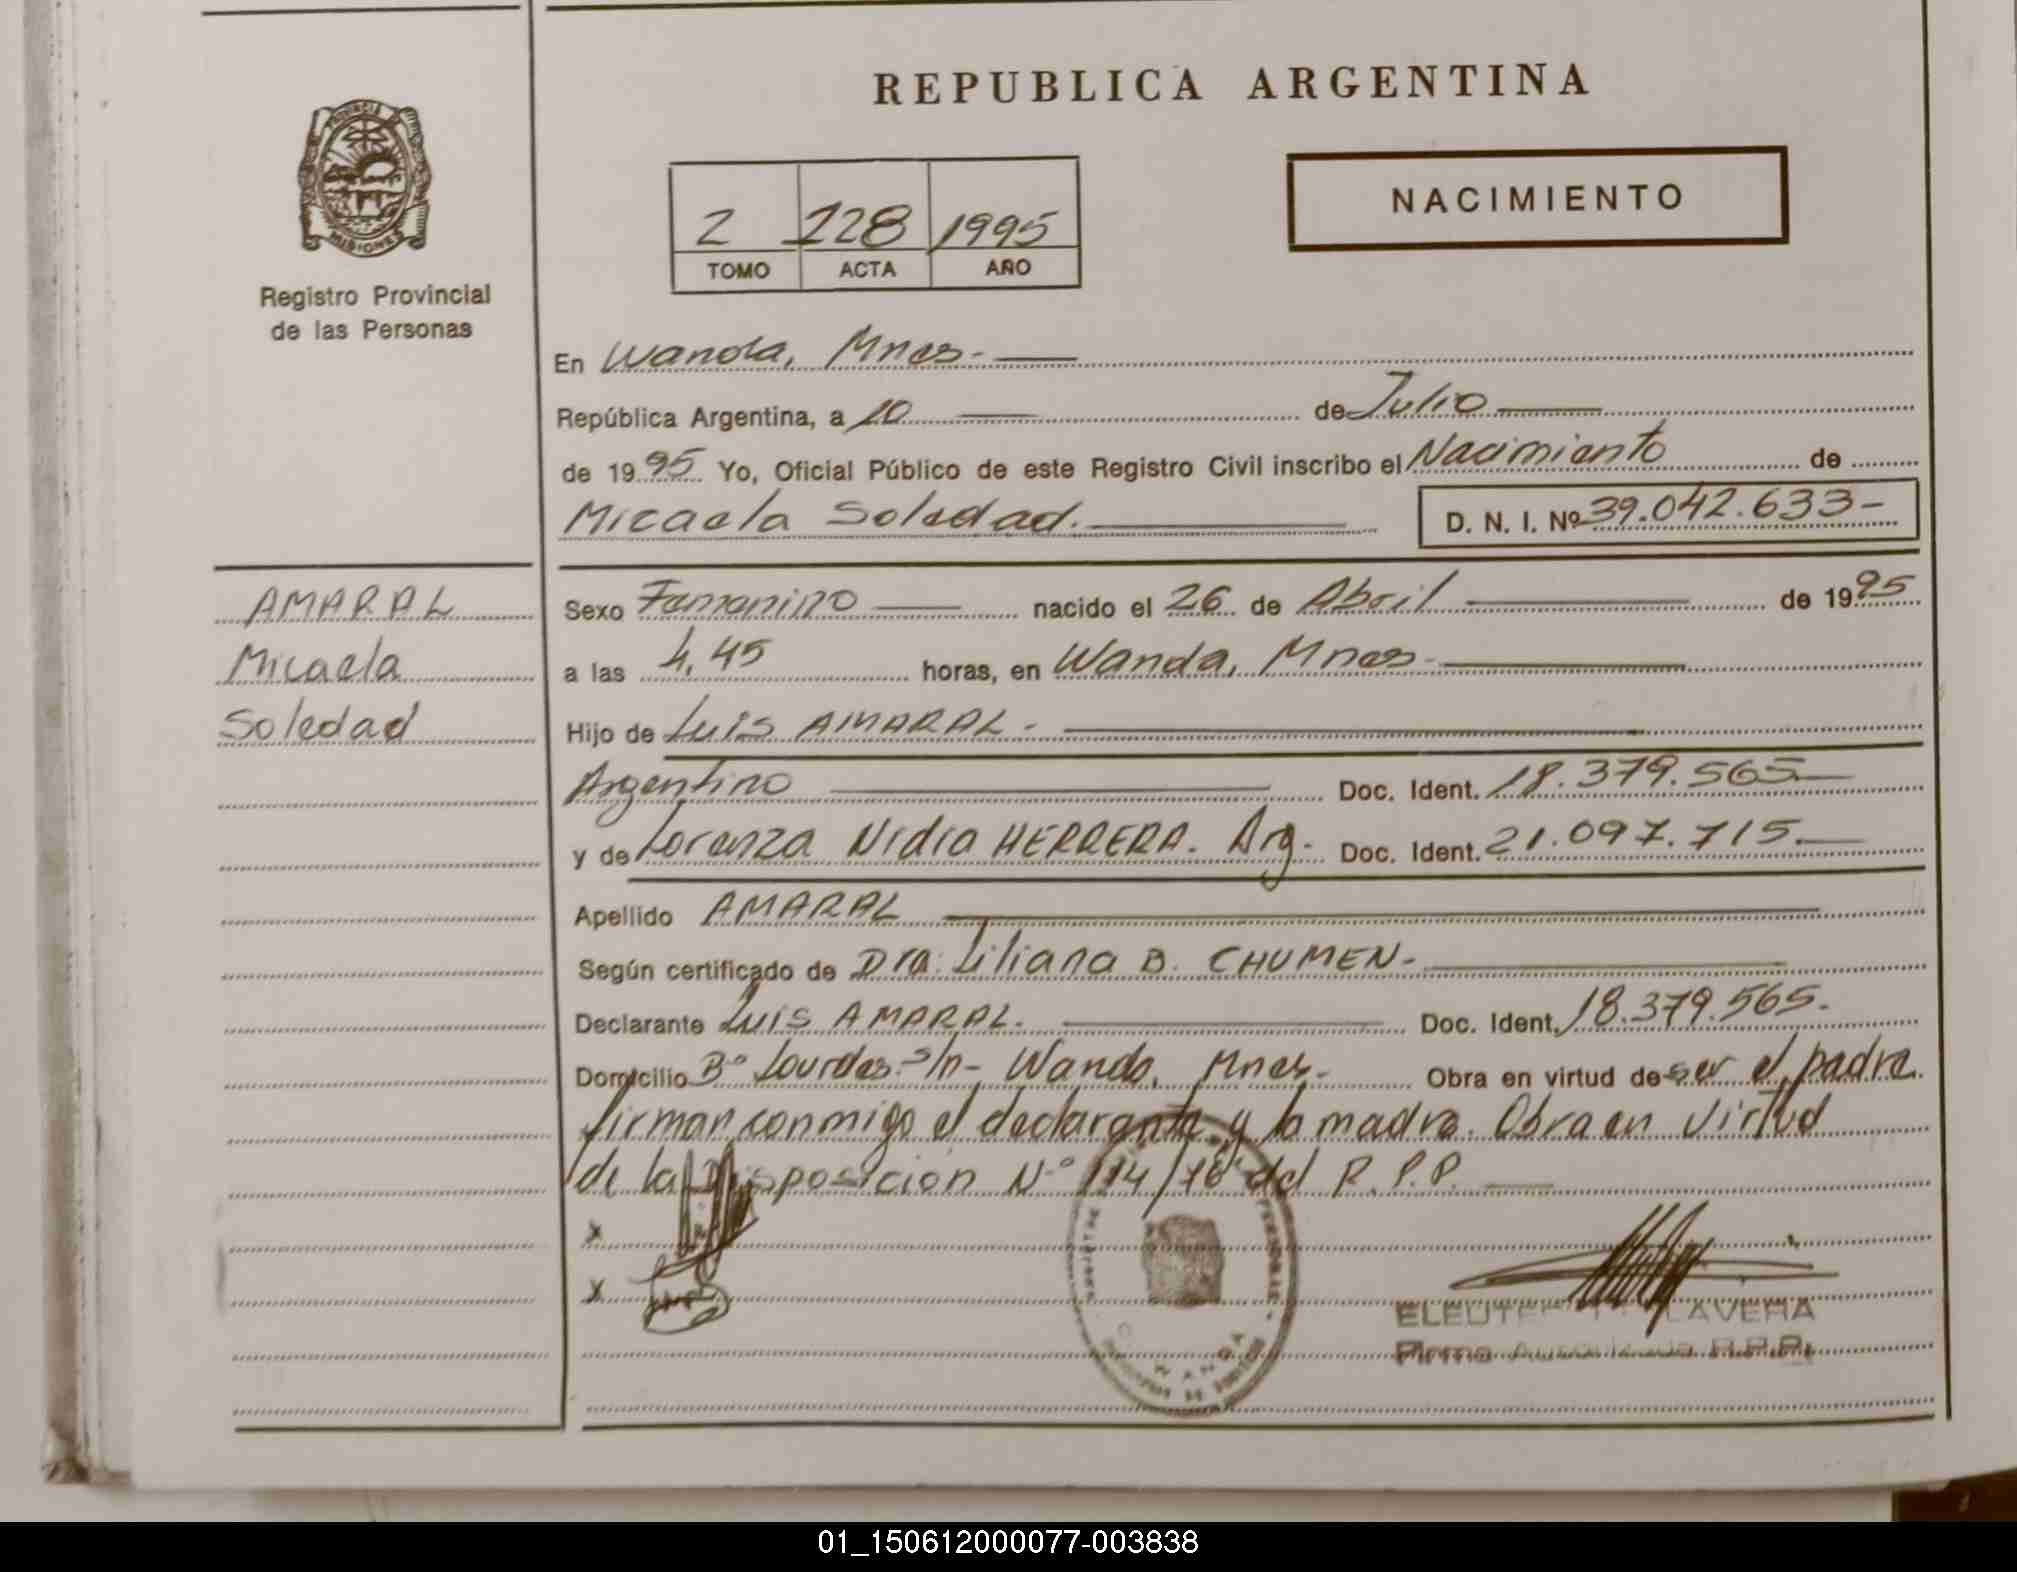 REPUBLICA ARGENTINA
PROVINCIA
MISIONES
Registro Provincial
de las Personas
2 228 1995
TOMO ACTA AÑO
NACIMIENTO
En Wanda, Mnes.-
República Argentina, a 10 de Julio
de 1995 Yo, Oficial Público de este Registro Civil inscribo el Nacimiento de
Micaela Soledad. D. N. I. Nº 39.042.633-
AMARAL
Micaela
Soledad
Sexo Femenino nacido el 26 de Abril de 1995
a las 4,45 horas, en Wanda, Mnes-
Hijo de Luis AMARAL-
Argentino Doc. Ident. 18.379.565
y de Lorenza Nidia HERRERA. Arg. Doc. Ident. 21.097.715.
Apellido AMARAL
Según certificado de Dra. Liliana B. CHUMEN-
Declarante Luis AMARAL. Doc. Ident. 18.379.565.
Domicilio Bº Lourdes s/n- Wanda, Mnes- Obra en virtud de ser el padre
firman conmigo el declarante y la madre. Obra en virtud
de la Disposición Nº 114/78 del R.P.P.
x
x
WANDA
Firma R.P.P.
01_150612000077-003838